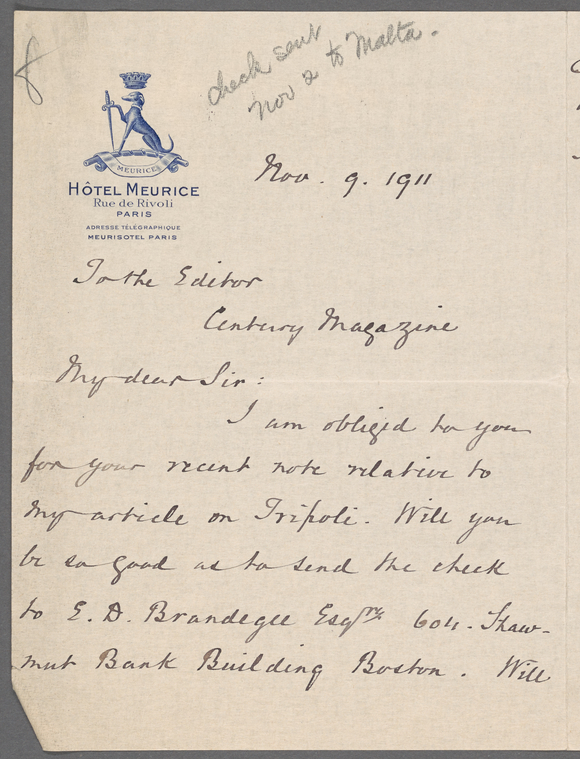 check sent
Nov 2 to Malta.
MEURICE
HÔTEL MEURICE
Rue de Rivoli
PARIS
ADRESSE TÉLÉGRAPHIQUE
MEURISOTEL PARIS
Nov. 9. 1911
To the Editor
Century Magazine
My dear Sir:
I am obliged to you
for your recent note relative to
my article on Tripoli. Will you
be so good as to send the check
to E. D. Brandegee Esqre 604. Shaw-
mut Bank Building Boston. Will